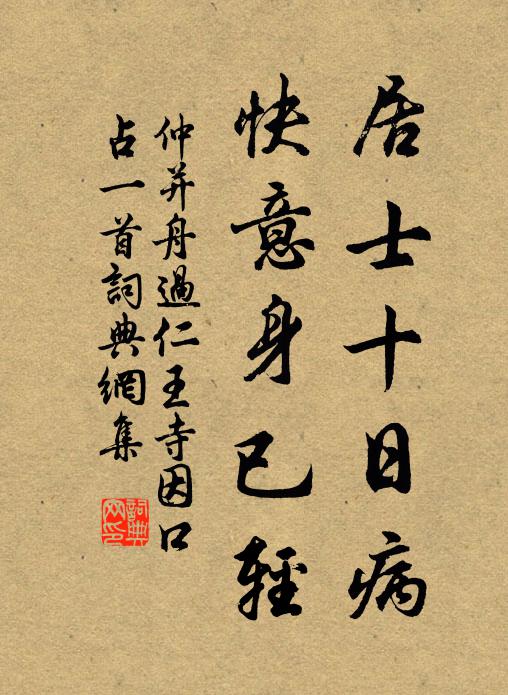 居士十日病
快意身已輕
仲并舟過仁王寺因口
占一首詞典網集
詞典
网印